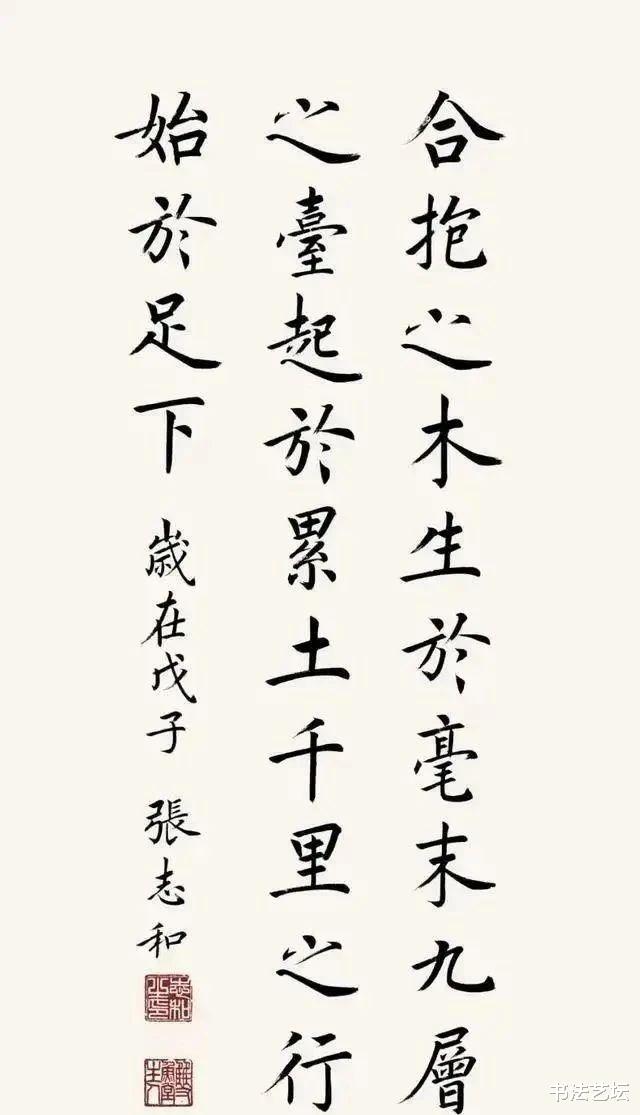 合抱之木生於毫末九層
之臺起於累土千里之行
始於足下 歲在戊子 張志和
书法艺坛